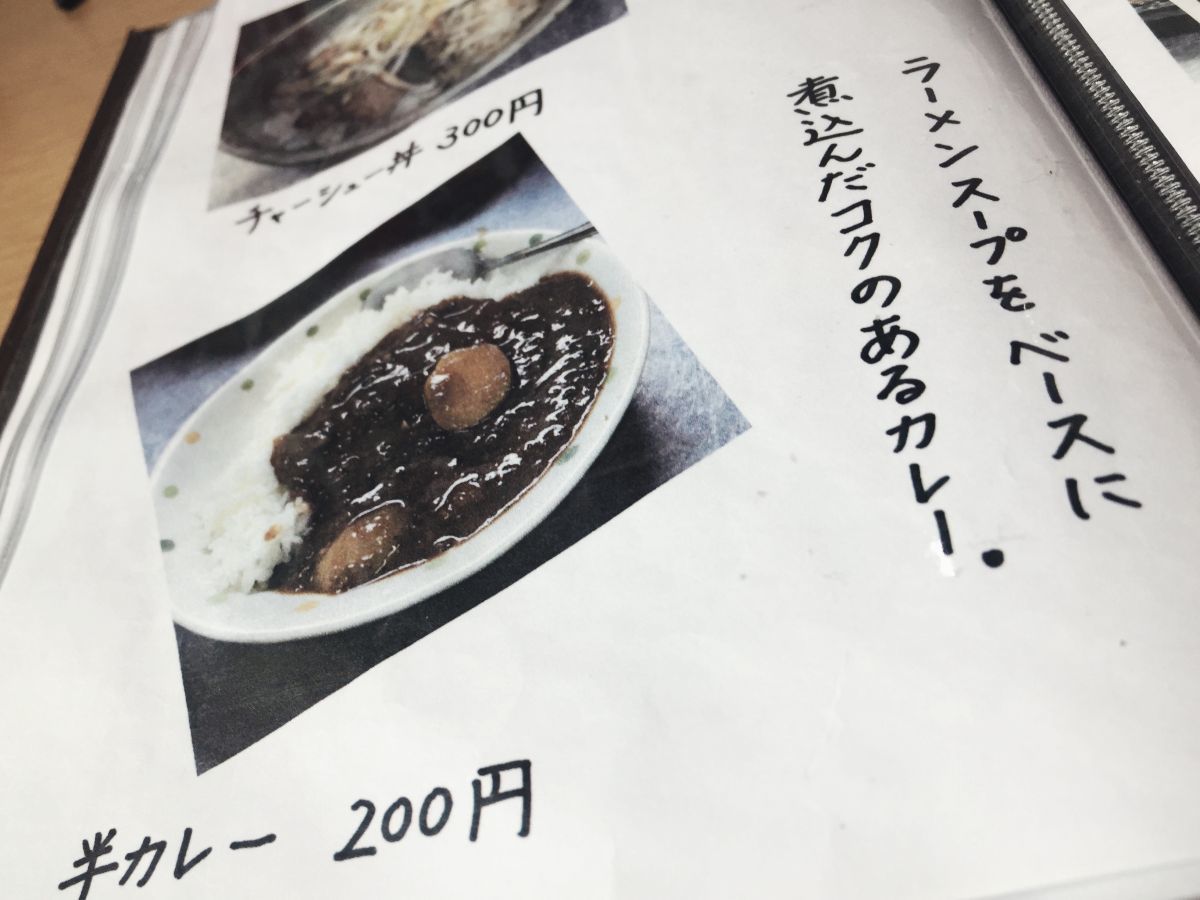 チャーシュー丼 300円
ラーメンスープをベースに
煮込んだコクのあるカレー.
半カレー 200円